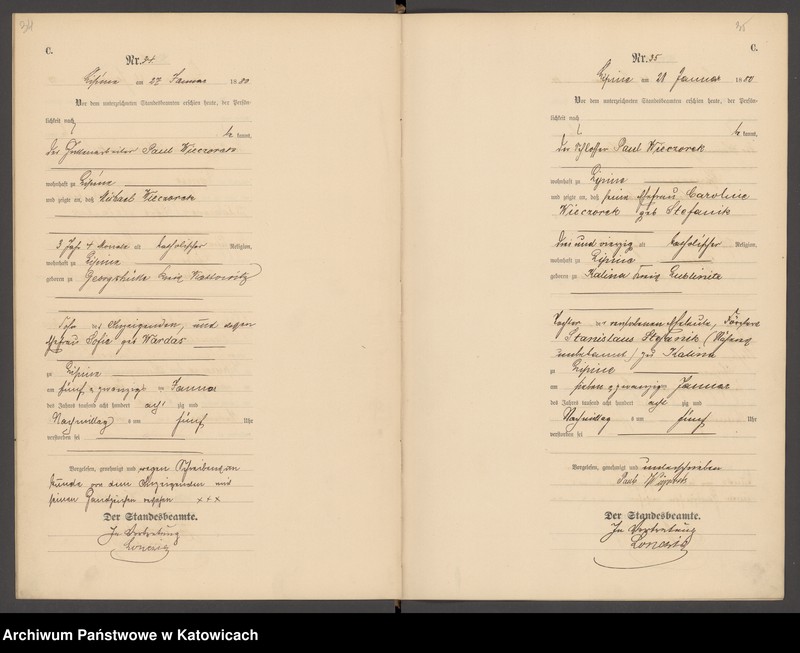 34
C.
Nr. 34
Lipine am 27 Januar 1880
Vor dem unterzeichneten Standesbeamten erschien heute, der Persön-
lichkeit nach
be kannt,
der Hüttenarbeiter Paul Wieczorek
wohnhaft zu Lipine
und zeigte an, daß Michael Wieczorek
3 Jahr 4 Monate alt katholischer Religion,
wohnhaft zu Lipine
geboren zu Georgshütte Kreis Kattowitz
Sohn des Anzeigenden, und dessen
Ehefrau Sofie geb Wardas
zu Lipine
am fünf u zwanzigs ten Januar
des Jahres tausend acht hundert acht zig und
Nachmittag s um fünf Uhr
verstorben sei
Vorgelesen, genehmigt und wegen Schreibensun
kunde von dem Anzeigenden mit
seinen Handzeichen versehen xxx
Der Standesbeamte.
In Vertretung
35
C.
Nr. 35
Lipine am 28 Januar 1880
Vor dem unterzeichneten Standesbeamten erschien heute, der Persön-
lichkeit nach
be kannt,
der Schlosser Paul Wieczorek
wohnhaft zu Lipine
und zeigte an, daß seine Ehefrau Caroline
Wieczorek geb Stefanik
drei und vierzig alt katholischer Religion,
wohnhaft zu Lipine
geboren zu Kalina Kreis Lublinitz
Tochter der verstorbenen Eheleute, Försters
Stanislaus Stefanik (
unbekannt) zu Kalina
zu Lipine
am sieben u zwanzigs Januar
des Jahres tausend acht hundert acht zig und
Nachmittag s um fünf Uhr
verstorben sei
Vorgelesen, genehmigt und unterschrieben
Paul
Der Standesbeamte.
In Vertretung
Archiwum Państwowe w Katowicach